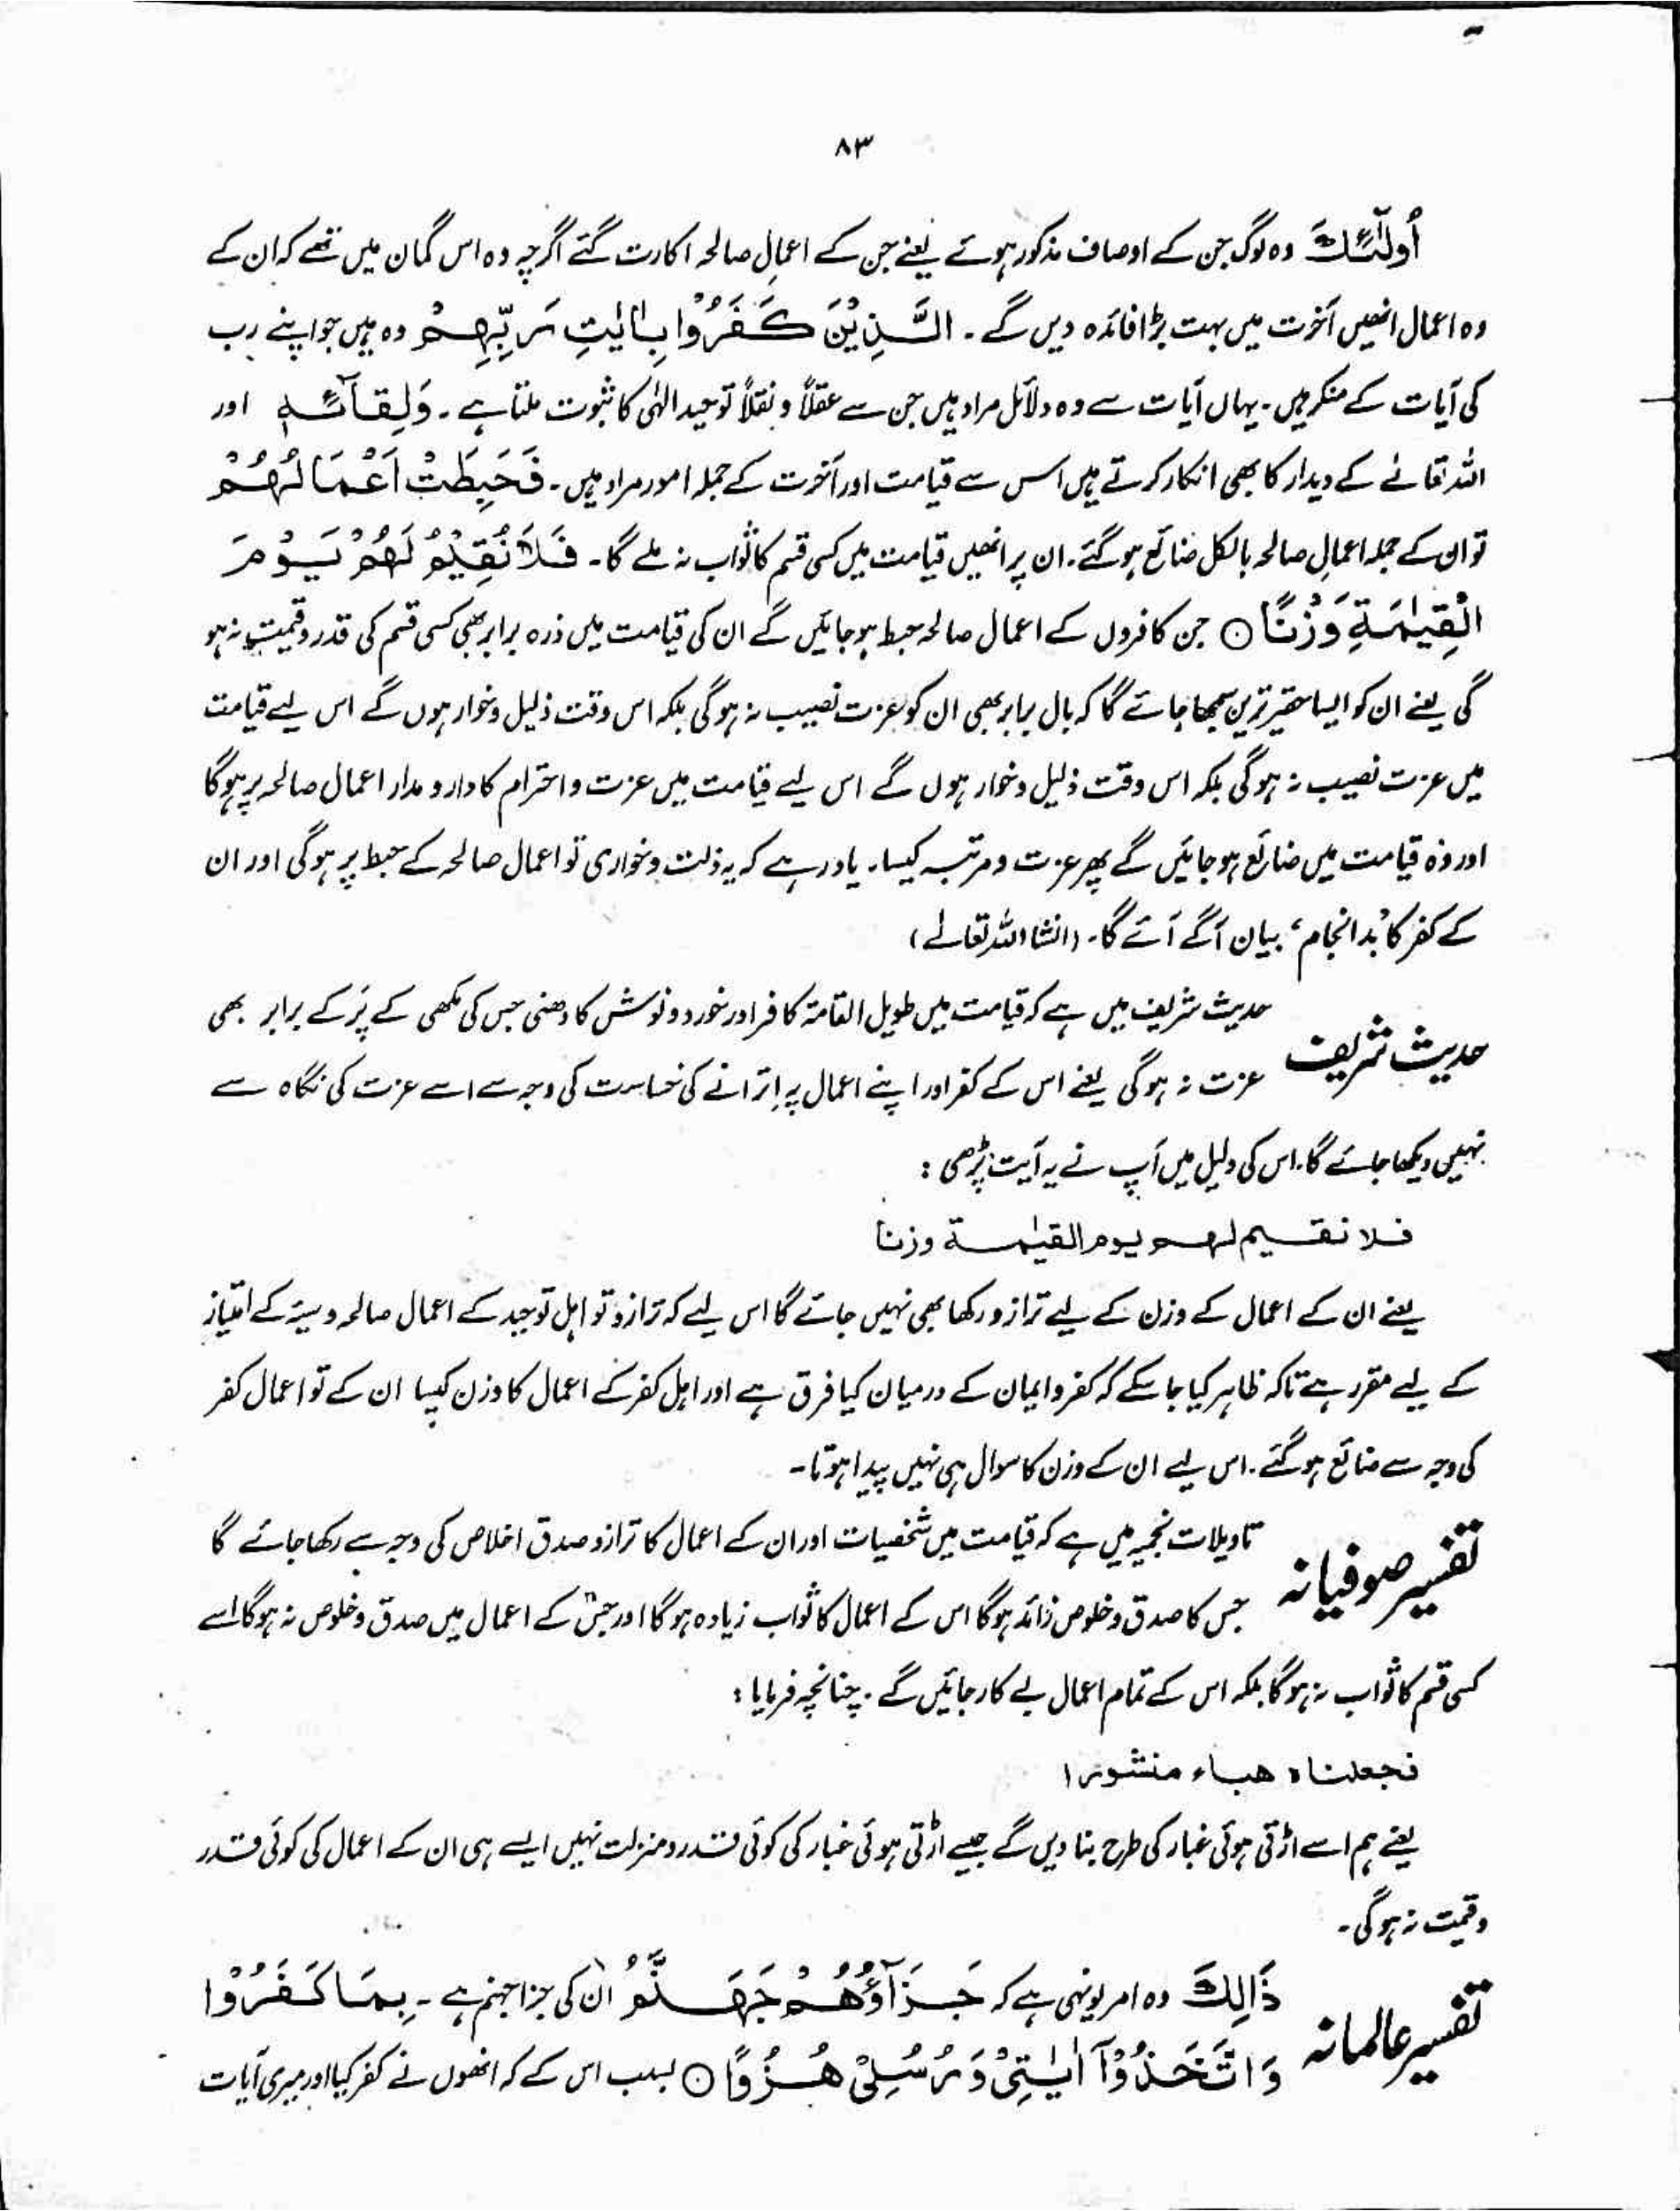 ۸۳
أُولٰٓئِكَ وہ لوگ جن کے اوصاف مذکور ہوئے یعنے جن کے اعمالِ صالحہ اکارت گئے اگرچہ وہ اس گمان میں تھے کہ ان کے
وہ اعمال انھیں آخرت میں بہت بڑا فائدہ دیں گے۔ الَّذِیْنَ كَفَرُوْا بِاٰیٰتِ رَبِّهِمْ وہ ہیں جو اپنے رب
کی آیات کے منکر ہیں۔ یہاں آیات سے وہ دلائل مراد ہیں جن سے عقلاً و نقلاً توحید الٰہی کا ثبوت ملتا ہے۔ وَلِقَآئِهٖ اور
اللہ تعالےٰ کے دیدار کا بھی انکار کرتے ہیں اس سے قیامت اور آخرت کے جملہ امور مراد ہیں۔ فَحَبِطَتْ اَعْمَالُهُمْ
تو ان کے جملہ اعمالِ صالحہ بالکل ضائع ہو گئے۔ ان پر انھیں قیامت میں کسی قسم کا ثواب نہ ملے گا۔ فَلَا نُقِیْمُ لَهُمْ یَوْمَ
الْقِیٰمَةِ وَزْنًا ○ جن کافروں کے اعمال صالحہ حبط ہو جائیں گے ان کی قیامت میں ذرہ برابر بھی کسی قسم کی قدر و قیمت نہ ہو
گی یعنے ان کو ایسا حقیر ترین سمجھا جائے گا کہ بال برابر بھی ان کو عزت نصیب نہ ہوگی بلکہ اس وقت ذلیل و خوار ہوں گے اس لیے قیامت
میں عزت نصیب نہ ہوگی بلکہ اس وقت ذلیل و خوار ہوں گے اس لیے قیامت میں عزت و احترام کا دار و مدار اعمال صالحہ پر ہوگا
اور وہ قیامت میں ضائع ہو جائیں گے پھر عزت و مرتبہ کیسا۔ یاد رہے کہ یہ ذلت و خواری تو اعمال صالحہ کے حبط پر ہوگی اور ان
کے کفر کا ’بد انجام‘ بیان آگے آئے گا۔ (انشاء اللہ تعالےٰ)
حدیث شریف
حدیث شریف میں ہے کہ قیامت میں طویل القامۃ کافر اور خورد و نوش کا دھنی جس کی مکھی کے پَر کے برابر بھی
عزت نہ ہوگی یعنے اس کے کفر اور اپنے اعمال پہ اِترانے کی خساست کی وجہ سے اسے عزت کی نگاہ سے
نہیں دیکھا جائے گا۔ اس کی دلیل میں آپ نے یہ آیت پڑھی :
فلا نقیم لهم یوم القیٰمة وزنا
یعنے ان کے اعمال کے وزن کے لیے ترازو رکھا بھی نہیں جائے گا اس لیے کہ ترازو تو اہل توحید کے اعمال صالحہ و سیئہ کے امتیاز
کے لیے مقرر ہے تاکہ ظاہر کیا جا سکے کہ کفر و ایمان کے درمیان کیا فرق ہے اور اہل کفر کے اعمال کا وزن کیسا ان کے تو اعمال کفر
کی وجہ سے ضائع ہو گئے۔ اس لیے ان کے وزن کا سوال ہی نہیں پیدا ہوتا۔
تفسیر صوفیانہ
تاویلات نجمیہ میں ہے کہ قیامت میں شخصیات اور ان کے اعمال کا ترازو صدق اخلاص کی وجہ سے رکھا جائے گا
جس کا صدق و خلوص زائد ہوگا اس کے اعمال کا ثواب زیادہ ہوگا اور جس کے اعمال میں صدق و خلوص نہ ہوگا اسے
کسی قسم کا ثواب نہ ہوگا بلکہ اس کے تمام اعمال بے کار جائیں گے۔ چنانچہ فرمایا :
فجعلناه هباء منثورا
یعنے ہم اسے اڑتی ہوئی غبار کی طرح بنا دیں گے جیسے اڑتی ہوئی غبار کی کوئی قدر و منزلت نہیں ایسے ہی ان کے اعمال کی کوئی قدر
و قیمت نہ ہوگی۔
تفسیر عالمانہ
ذَالِكَ وہ امر یونہی ہے کہ جَزَآؤُهُمْ جَهَنَّمُ ان کی جزا جہنم ہے۔ بِمَا كَفَرُوْا
وَاتَّخَذُوْٓا اٰیٰتِیْ وَرُسُلِیْ هُزُوًا ○ بسبب اس کے کہ انھوں نے کفر کیا اور میری آیات